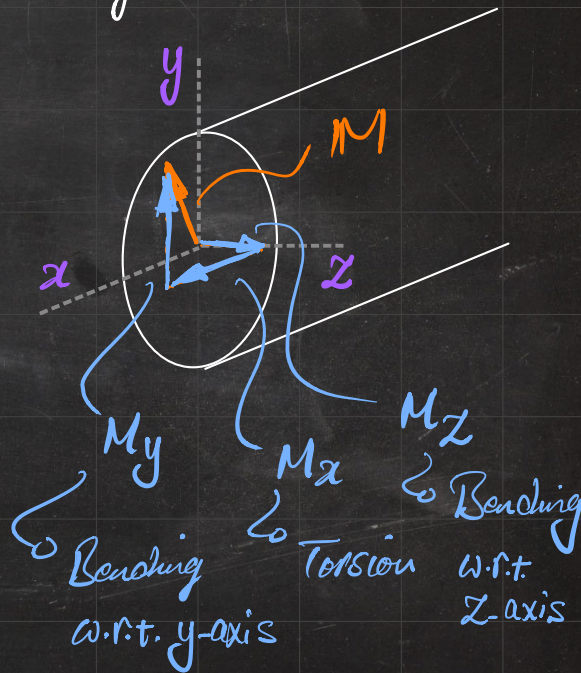 y
M
x
z
My
Mx
Mz
Bending
w.r.t. y-axis
Torsion
Bending
w.r.t.
z-axis